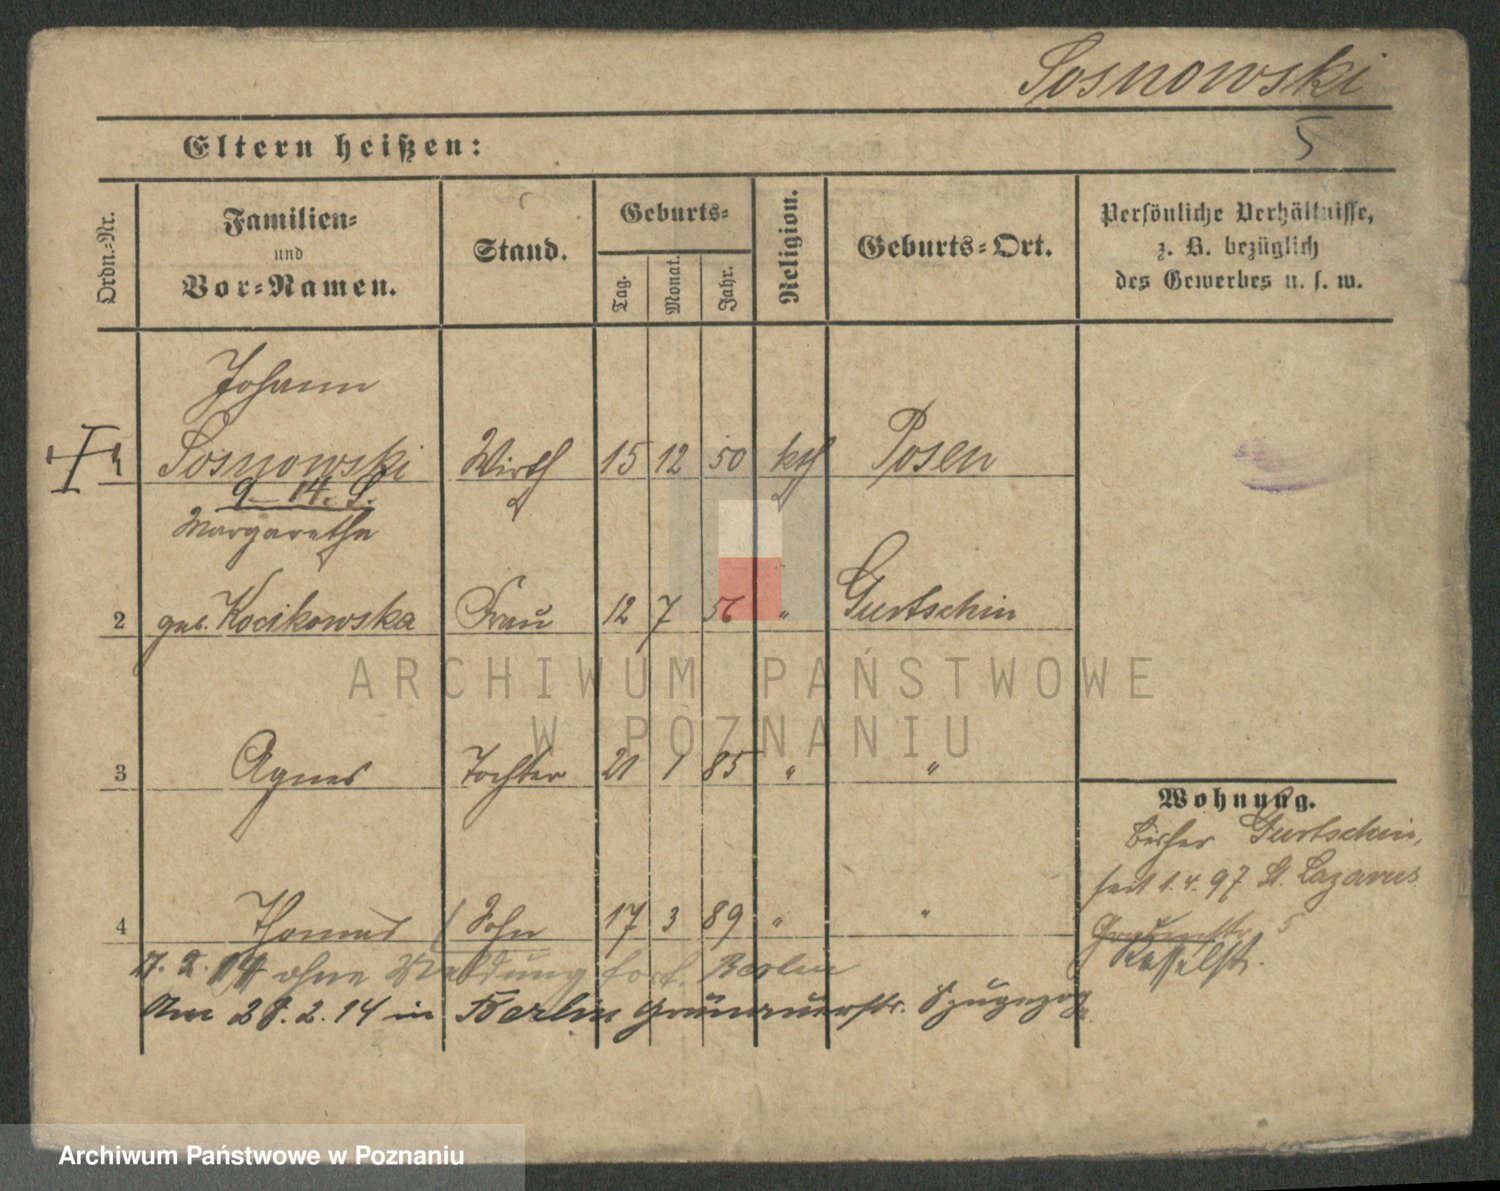 Sosnowski
Eltern heißen:
5
Ordn.-Nr.
Familien-
und
Vor-Namen.
Stand.
Geburts-
Tag.
Monat.
Jahr.
Religion.
Geburts-Ort.
Persönliche Verhältnisse,
z. B. bezüglich
des Gewerbes u. s. w.
Johann
1 Sosnowski Wirth 15 12 50 kth Posen
Margarethe
2 geb. Kocikowska Frau 12 7 56 " Gurtschin
3 Agnes Tochter 21 1 85 " "
Wohnung.
bisher Gurtschin,
seit 1.4.97 St. Lazarus
5
4 Thomas Sohn 17 3 89 " "
2. 14 ohne Meldung fort. Berlin
Am 28.2.14 in Berlin
ARCHIWUM PAŃSTWOWE
W POZNANIU
Archiwum Państwowe w Poznaniu